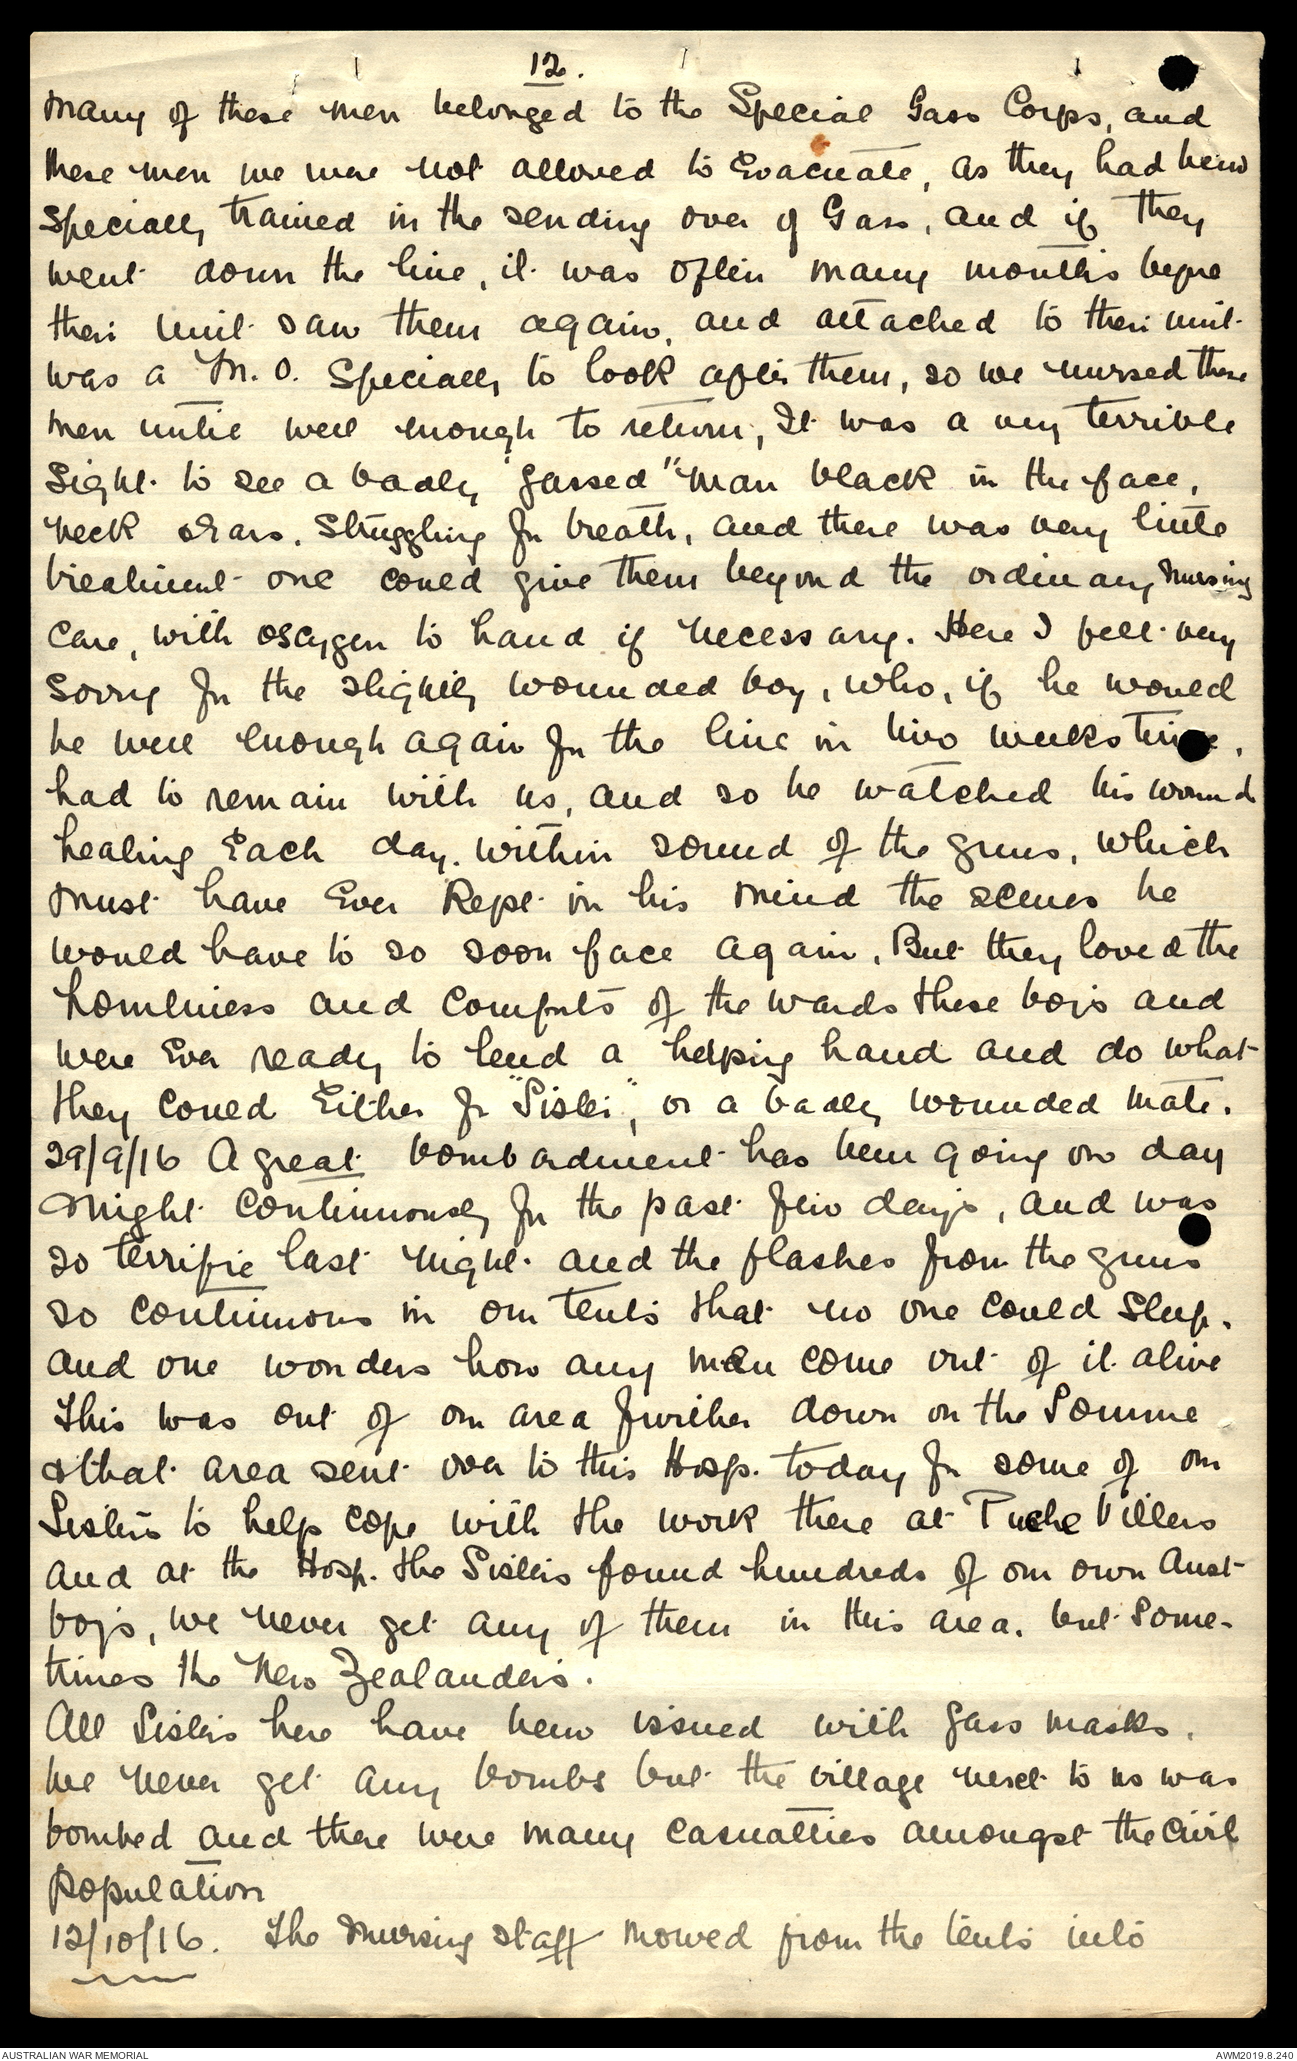 12.
Many of these men belonged to the Special Gass Corps, and
these men we were not allowed to Evacuate, as they had been
specially trained in the sending over of Gass, and if they
went down the line, it was often many months before
their unit saw them again, and attached to their unit
was a M.O. specially to look after them, so we nursed these
men until well enough to return, It was a very terrible
sight to see a badly "gassed" man black in the face,
neck & ears, struggling for breath, and there was very little
treatment one could give them beyond the ordinary nursing
care, with oxygen to hand if necessary. Here I felt very
sorry for the slightly wounded boy, who, if he would
be well enough again for the line in two weeks time,
had to remain with us, and so he watched his wound
healing Each day. within sound of the guns, which
must have Ever Kept in his mind the scenes he
would have to so soon face again. But they loved the
homliness and comforts of the wards these boys and
were Ever ready to lend a helping hand and do what
they could Either for "Sister", or a badly wounded mate.
29/9/16 A great bombardment has been going on day
& night continuously for the past few days, and was
so terrific last night and the flashes from the guns
so continuous in our tents that no one could sleep.
and one wonders how any men come out of it alive
This was out of our area further down on the Somme
& that area sent over to this Hosp. today for some of our
Sisters to help cope with the work there at Puche Villers
and at the Hosp. the Sisters found hundreds of our own Aust
boys, we never get any of them in this area, but some-
times the New Zealanders.
All Sisters here have been issued with gass masks.
We never get any bombs but the village next to us was
bombed and there were many casualties amongst the civil
population
12/10/16. The nursing staff moved from the tents into
AUSTRALIAN WAR MEMORIAL
AWM2019.8.240